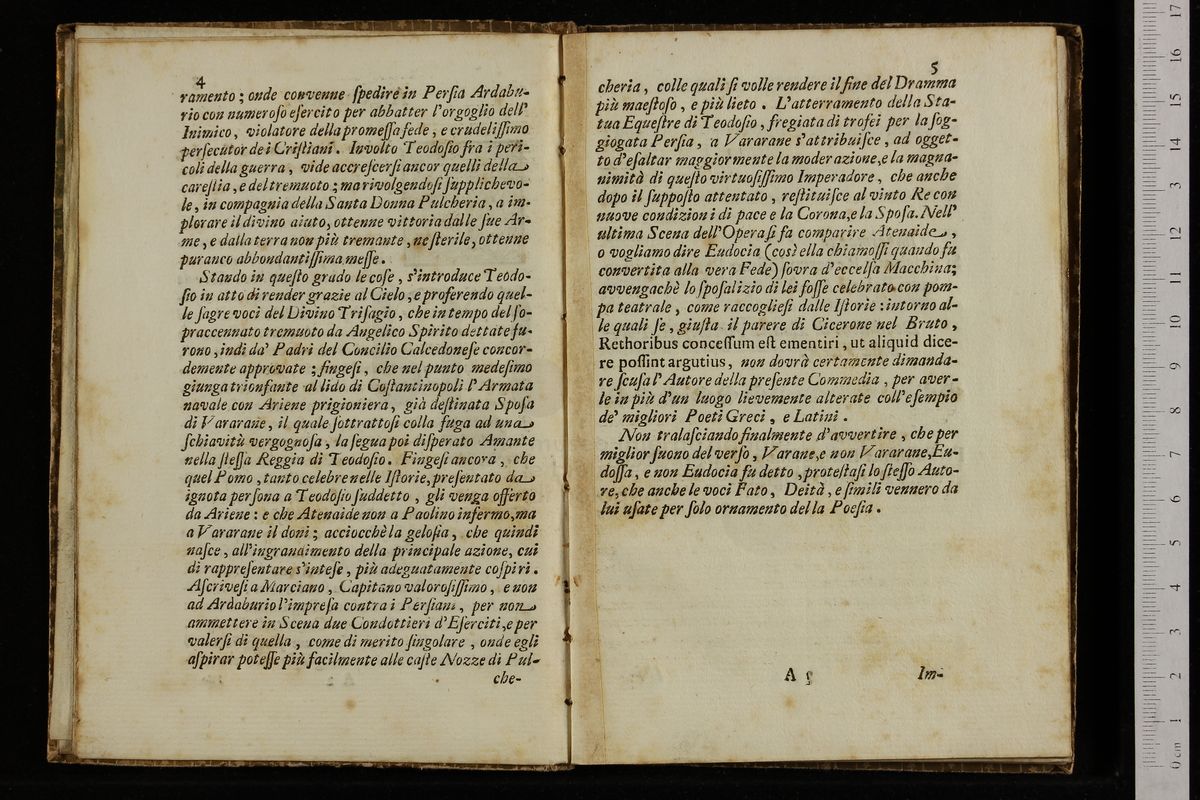 4
ramento ; onde convenne ſpedire in Perſia Ardabu-
rio con numeroſo eſercito per abbatter l'orgoglio dell'
Inimico, violatore della promeſſa fede, e crudeliſſimo
perſecutor de i Criſtiani. Involto Teodoſio fra i peri-
coli della guerra, vide accreſcerſi ancor quelli della
careſtia, e del tremuoto ; ma rivolgendoſi ſupplichevo-
le, in compagnia della Santa Donna Pulcheria, a im-
plorare il divino aiuto, ottenne vittoria dalle ſue Ar-
me, e dalla terra non più tremante, ne ſterile, ottenne
pur anco abbondantiſſima meſſe.
Stando in queſto grado le coſe, s'introduce Teodo-
ſio in atto di render grazie al Cielo, e proferendo quel-
le ſagre voci del Divino Triſagio, che in tempo del ſo-
praccennato tremuoto da Angelico Spirito dettate fu-
rono, indi da' Padri del Concilio Calcedoneſe concor-
demente approvate ; fingeſi, che nel punto medeſimo
giunga trionfante al lido di Coſtantinopoli l'Armata
navale con Ariene prigioniera, già deſtinata Spoſa
di Vararane, il quale ſottrattoſi colla fuga ad una
ſchiavitù vergognoſa, la ſegua poi diſperato Amante
nella ſteſſa Reggia di Teodoſio. Fingeſi ancora, che
quel Pomo, tanto celebre nelle Iſtorie, preſentato da
ignota perſona a Teodoſio ſuddetto, gli venga offerto
da Ariene : e che Atenaide non a Paolino infermo, ma
a Vararane il doni ; acciocchè la geloſia, che quindi
naſce, all'ingrandimento della principale azione, cui
di rappreſentare s'inteſe, più adeguatamente coſpiri.
Aſcriveſi a Marciano, Capitano valoroſiſſimo, e non
ad Ardaburio l'impreſa contra i Perſiani, per non
ammettere in Scena due Condottieri d'Eſerciti, e per
valerſi di quella, come di merito ſingolare, onde egli
aſpirar poteſſe più facilmente alle caſte Nozze di Pul-
che-
5
cheria, colle quali ſi volle rendere il fine del Dramma
più maeſtoſo, e più lieto. L'atterramento della Sta-
tua Equeſtre di Teodoſio, fregiata di trofei per la ſog-
giogata Perſia, a Vararane s'attribuiſce, ad ogget-
to d'eſaltar maggiormente la moderazione, e la magna-
nimità di queſto virtuoſiſſimo Imperadore, che anche
dopo il ſuppoſto attentato, reſtituiſce al vinto Re con
nuove condizioni di pace e la Corona, e la Spoſa. Nell'
ultima Scena dell'Opera ſi fa comparire Atenaide,
o vogliamo dire Eudocia (così ella chiamoſſi quando fu
convertita alla vera Fede) ſovra d'eccelſa Macchina;
avvengachè lo ſpoſalizio di lei foſſe celebrato con pom-
pa teatrale, come raccoglieſi dalle Iſtorie : intorno al-
le quali ſe, giuſta il parere di Cicerone nel Bruto,
Rethoribus conceſſum eſt ementiri, ut aliquid dice-
re poſſint argutius, non dovrà certamente dimanda-
re ſcuſa l'Autore della preſente Commedia, per aver-
le in più d'un luogo lievemente alterate coll'eſempio
de' migliori Poeti Greci, e Latini.
Non tralaſciando finalmente d'avvertire, che per
miglior ſuono del verſo, Varane, e non Vararane, Eu-
doſſa, e non Eudocia fu detto, proteſtaſi lo ſteſſo Auto-
re, che anche le voci Fato, Deità, e ſimili vennero da
lui uſate per ſolo ornamento della Poeſia.
A 2 Im-
0 cm 1 2 3 4 5 6 7 8 9 10 11 12 13 14 15 16 17